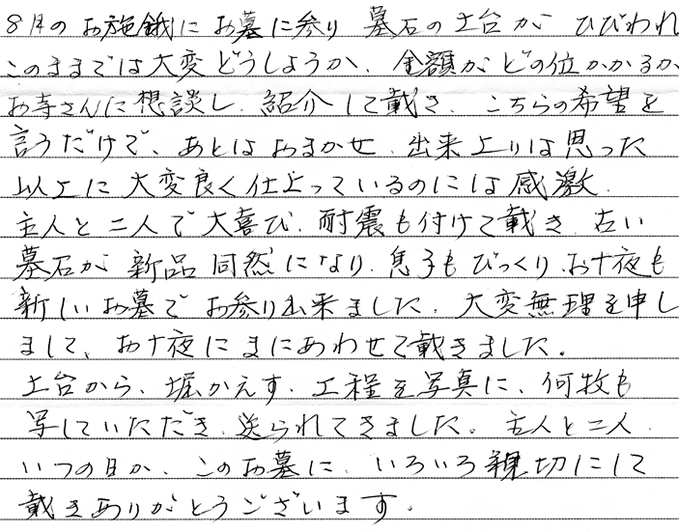 8月のお施餓にお墓に参り 墓石の土台が ひびわれ
このままでは大変どうしようか、金額がどの位かかるか
お寺さんに想談し、紹介して戴き、こちらの希望を
言うだけで、あとはおまかせ、出来上りは思った
以上に大変良く仕上っているのには感激、
主人と二人で大喜び、耐震も付けて戴き、古い
墓石が 新品同然になり、息子もびっくり、お十夜も
新しいお墓でお参り出来ました、大変無理を申し
まして、お十夜にまにあわせて戴きました。
土台から、堀かえす、工程を写真に、何牧も
写していただき、送られてきました。主人と二人、
いつの日か、このお墓に、いろいろ親切にして
戴きありがとうございます。